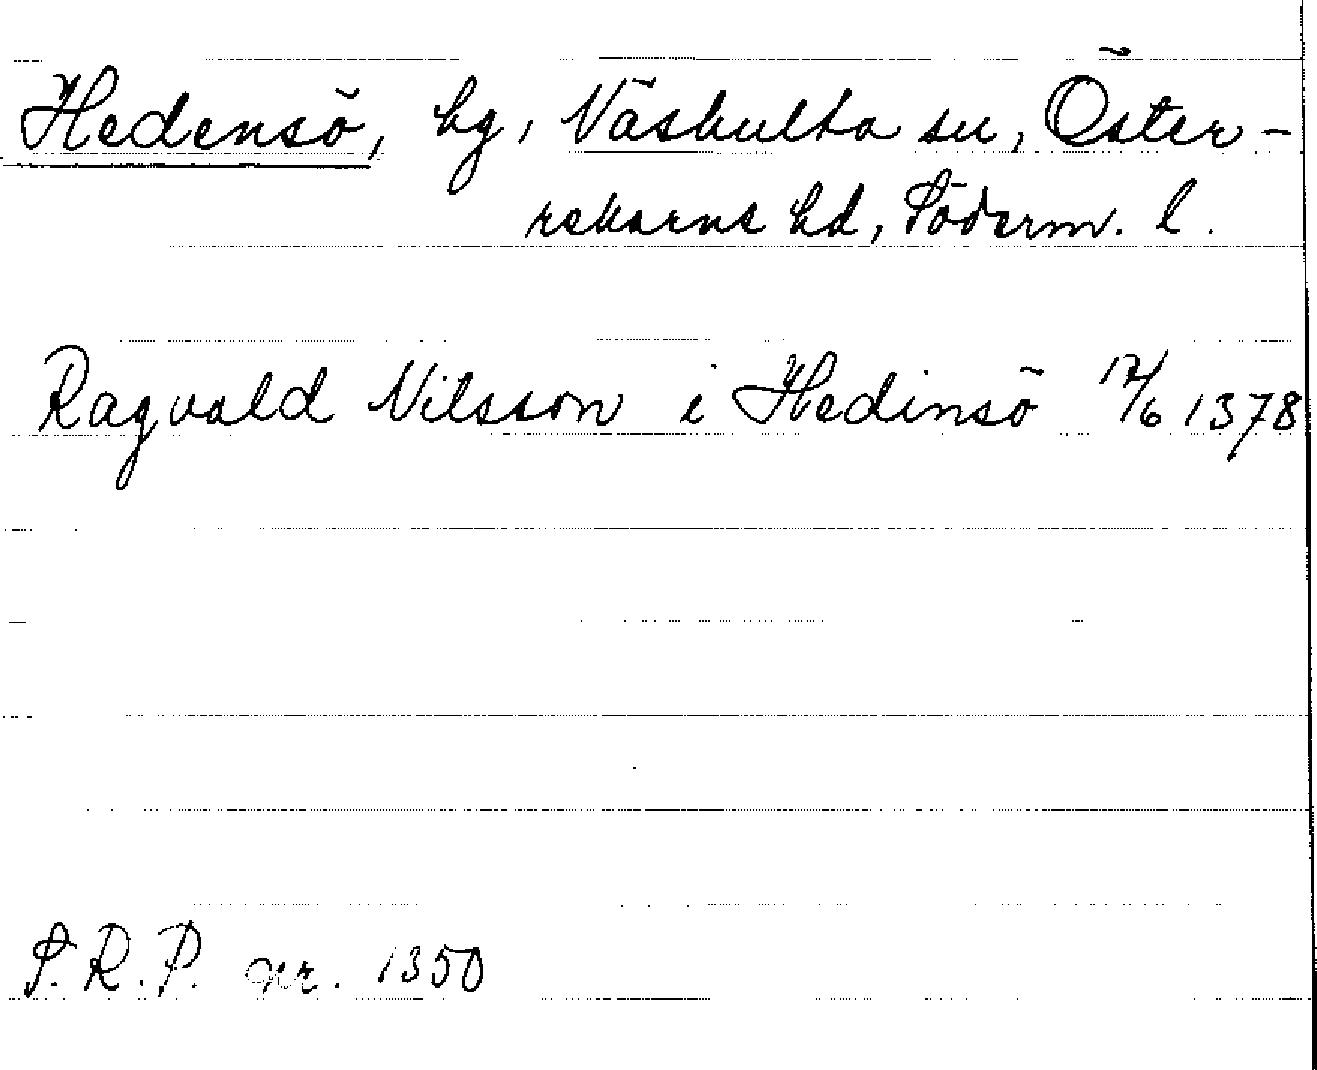 Hedensö, hg, Näshulta sn, Öster-
rekarne hd, Söderm. l.
Ragvald Nilsson i Hedinsö 17/6 1378
S. R. P. nr. 1350